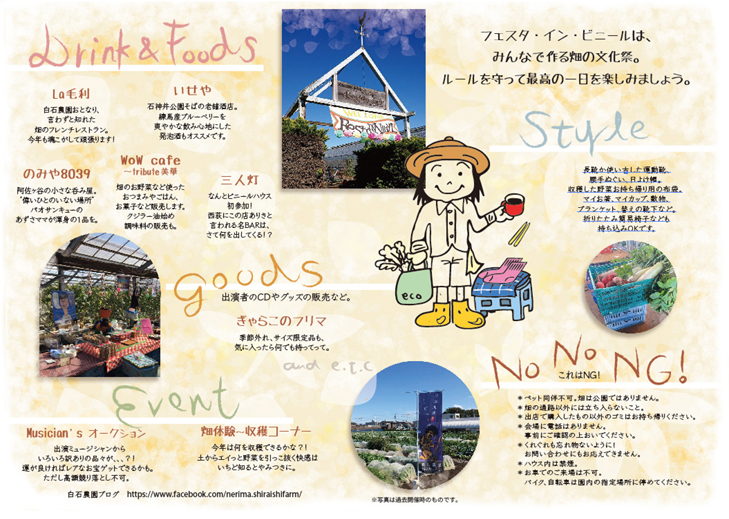 Drink & Foods
La毛利
白石農園おとなり、
言わずと知れた
畑のフレンチレストラン。
今年も魂こがして頑張ります!
いせや
石神井公園そばの老舗酒店。
練馬産ブルーベリーを
爽やかな飲み心地にした
発泡酒もオススメです。
のみや8039
阿佐ヶ谷の小さな呑み屋。
"偉いひとのいない場所"
バオサンキューの
あずさママが渾身の1品を。
WoW cafe
~tribute 美華
畑のお野菜など使った
おつまみやごはん、
お菓子など販売します。
クジラー油始め
調味料の販売も。
三人灯
なんとビニールハウス
初参加!
西荻にこの店ありさと
言われる名BARは、
さて何を出してくる!?
フェスタ・イン・ビニールは、
みんなで作る畑の文化祭。
ルールを守って最高の一日を楽しみましょう。
Style
長靴か使い古した運動靴、
腰手ぬぐい、日よけ帽。
収穫した野菜お持ち帰り用の布袋。
マイお茶、マイカップ、敷物、
ブランケット、替えの靴下など。
折りたたみ簡易椅子なども
持ち込みOKです。
eco
goods
出演者のCDやグッズの販売など。
ぎゃらこのフリマ
季節外れ、サイズ限定品も、
気に入ったら何でも持ってって。
and e.t.c
Event
Musician's オークション
出演ミュージシャンから
いろいろ訳ありの品々が、、、?!
運が良ければレアなお宝ゲットできるかも。
ただし高額競り落とし不可。
畑体験〜収穫コーナー
今年は何を収穫できるかな?!
土からエイっと野菜を引っこ抜く快感は
いちど知るとやみつきに。
白石農園ブログ https://www.facebook.com/nerima.shiraishifarm/
No No NG!
これはNG!
*ペット同伴不可。畑は公園ではありません。
*畑の通路以外には立ち入らないこと。
*出店で購入したもの以外のゴミはお持ち帰りください。
*会場に電話はありません。
事前にご確認の上おいでください。
*くれぐれも忘れ物ないように!
お問い合わせにもお応えできません。
*ハウス内は禁煙。
*お車でのご来場は不可。
バイク、自転車は園内の指定場所に停めてください。
※写真は過去開催時のものです。